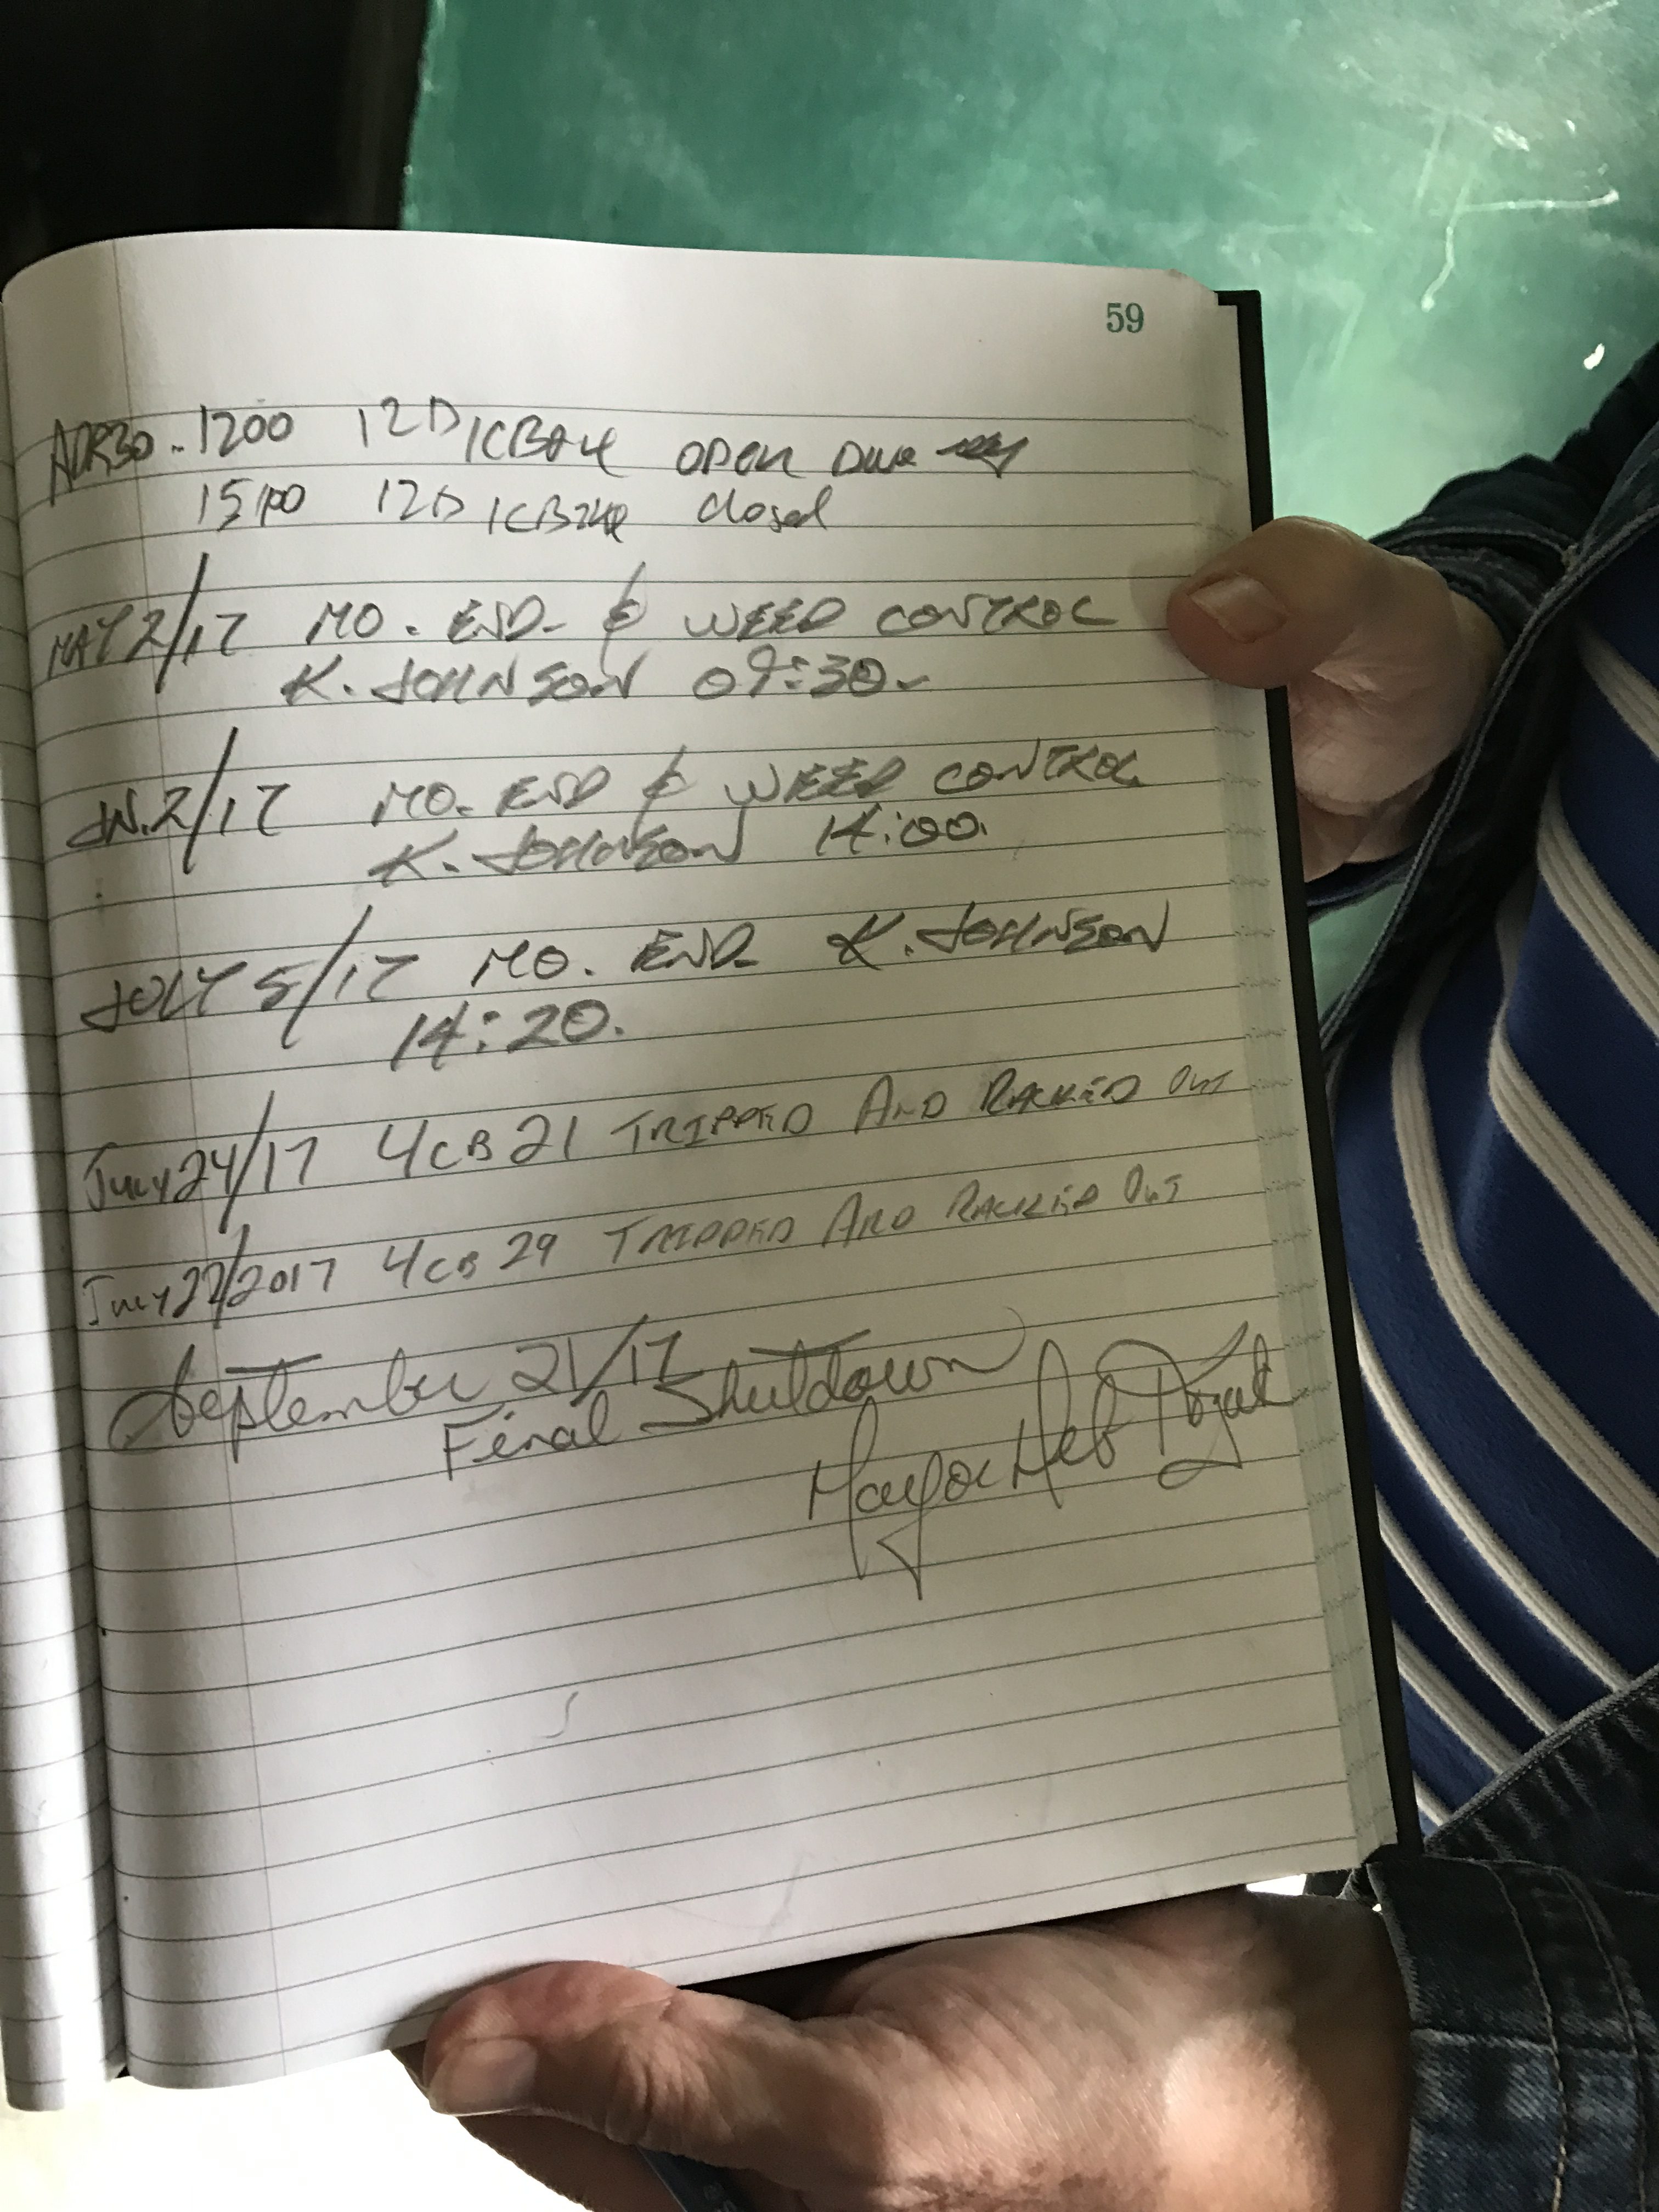 59
APR30-1200 12D1CB24 OPEN Due
1500 12D 1CB24 closed
MAY 2/17 MO. END. & WEED CONTROL
K. JOHNSON 09:30-
JN.2/17 MO. END & WEED CONTROL
K. JOHNSON 14:00.
JULY 5/17 MO. END. K. JOHNSON
14:20.
July 24/17 4CB21 TRIPPED AND RACKED OUT
July 27/2017 4CB29 TRIPPED AND RACKED OUT
September 21/17
Final Shutdown
Mayor Deb